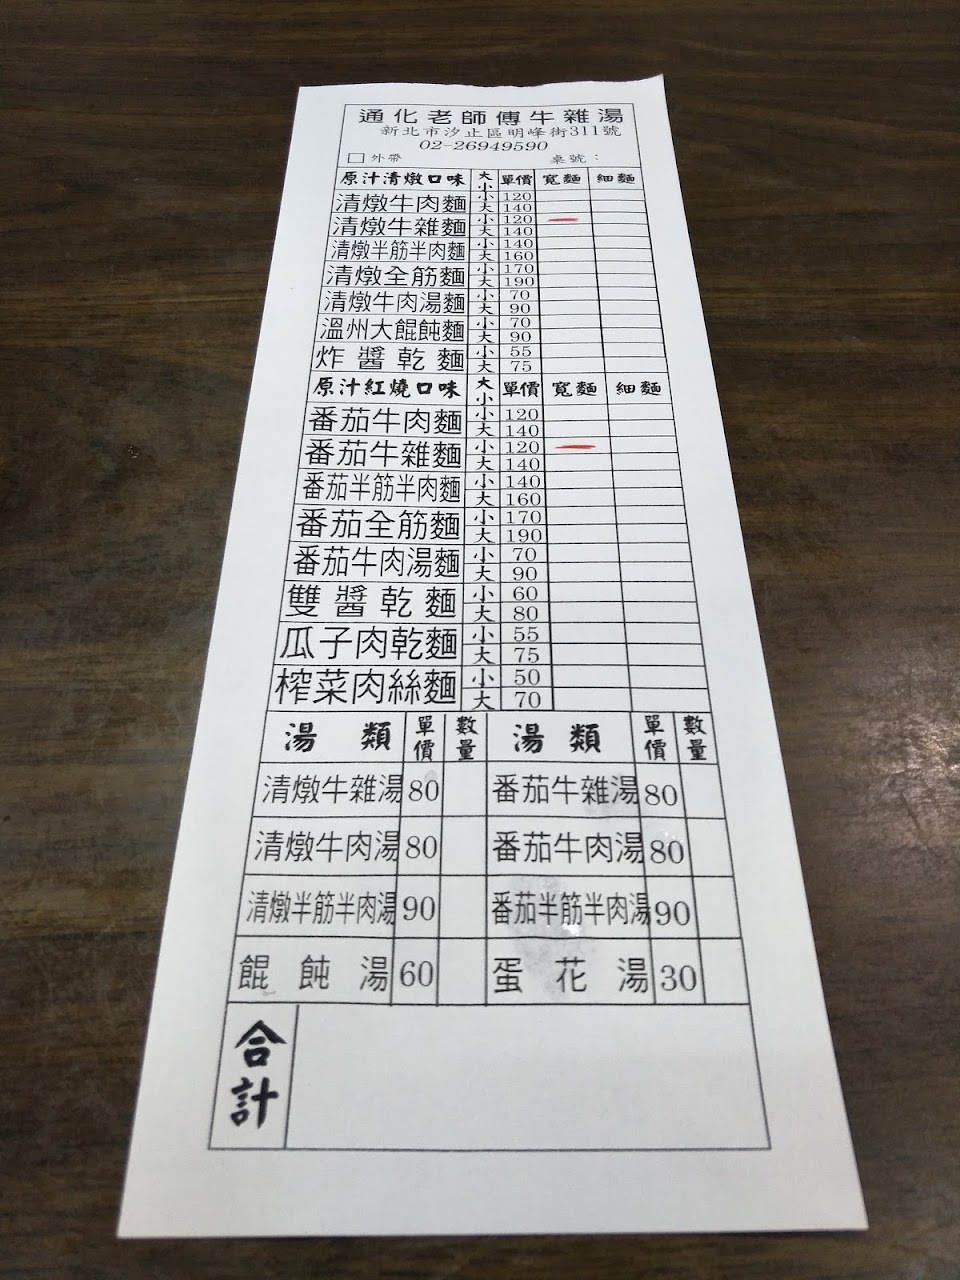 通化老師傅牛雜湯
新北市汐止區明峰街311號
02-26949590
外帶 桌號：
原汁清燉口味 大小 單價 寬麵 細麵
清燉牛肉麵 小 120
大 140
清燉牛雜麵 小 120
大 140
清燉半筋半肉麵 小 140
大 160
清燉全筋麵 小 170
大 190
清燉牛肉湯麵 小 70
大 90
溫州大餛飩麵 小 70
大 90
炸醬乾麵 小 55
大 75
原汁紅燒口味 大小 單價 寬麵 細麵
番茄牛肉麵 小 120
大 140
番茄牛雜麵 小 120
大 140
番茄半筋半肉麵 小 140
大 160
番茄全筋麵 小 170
大 190
番茄牛肉湯麵 小 70
大 90
雙醬乾麵 小 60
大 80
瓜子肉乾麵 小 55
大 75
榨菜肉絲麵 小 50
大 70
湯類 單價 數量 湯類 單價 數量
清燉牛雜湯 80 番茄牛雜湯 80
清燉牛肉湯 80 番茄牛肉湯 80
清燉半筋半肉湯 90 番茄半筋半肉湯 90
餛飩湯 60 蛋花湯 30
合計